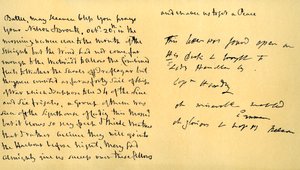 Battle, may Heaven bless you prays
your Nelson & Bronte, Octr. 20th, in the
morning we were close to the mouth of the
Streights but the Wind had not come far
enough to the Westward to allow the Combined
Fleets to Weather the Shoals off Traflagar but
they were counted as far as forty Sail of Ships
of War which I suppose to be 34 of the Line
and six frigates, a group of them was
seen off the Lighthouse of Cadiz this Morng
but it blows so very fresh & thick weather
that I rather believe they will go into
the Harbour before night, May God
Almighty give us success over these fellows
and enable us to get a Peace
This letter was found open on
His Desk & brought to
Lady Hamilton by
Capn Hardy
oh miserable wretched
Emma
oh glorious & happy Nelson